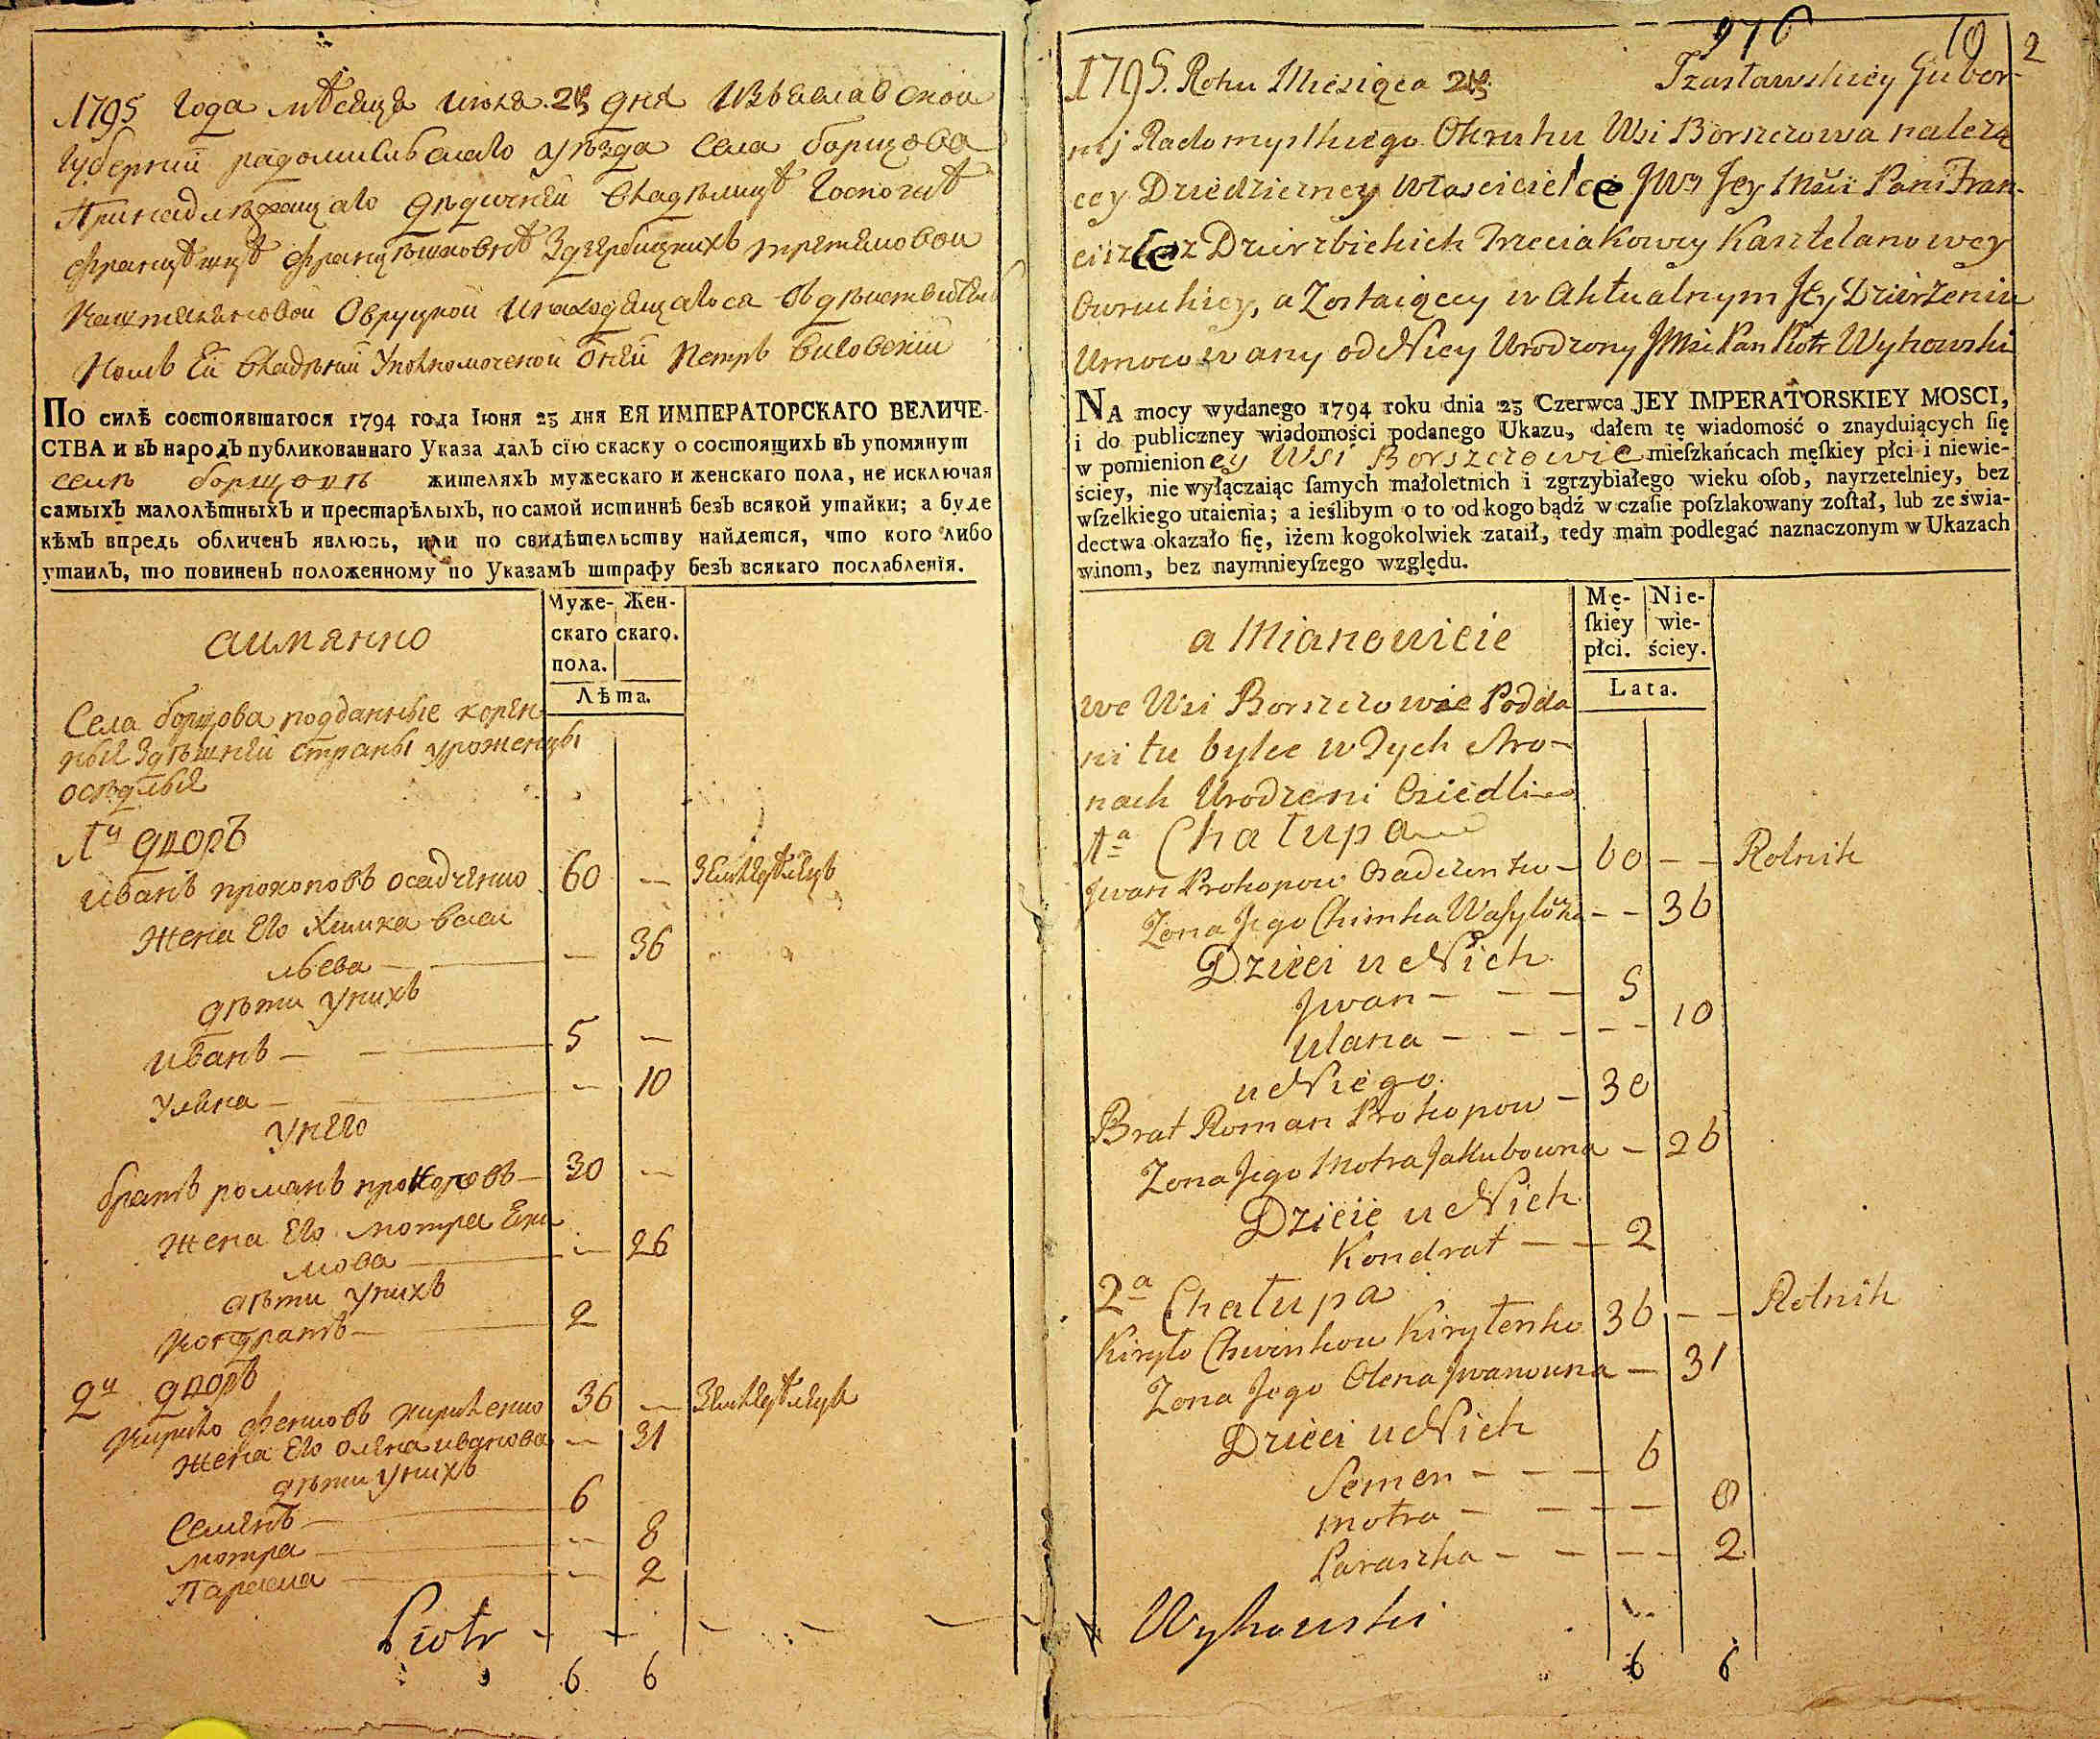 1795 Года мѣсяца июля 25 дня Изъяславской
Губернии радомисльскаго уѣзда села борщова
Принадлежащаго дѣдичней владѣлицѣ Госпожѣ
францѣшцѣ
Каштеляновой Овруцкой и находящагося въ дѣйствител
номъ Ей владѣнии Уполномоченой Оней Петръ виговский
ПО силѣ состоявшагося 1794 года Іюня 23 дня ЕЯ ИМПЕРАТОРСКАГО ВЕЛИЧЕ-
СТВА и въ народъ публикованнаго Указа далъ сїю скаску о состоящихъ въ упомянут
селѣ борщовѣ жителяхъ мужескаго и женскаго пола, не исключая
самыхъ малолѣтныхъ и престарѣлыхъ, по самой истиннѣ безъ всякой утайки; а буде
кѣмъ впредь обличенъ явлюсь, или по свидѣтельству найдется, что кого либо
утаилъ, то повиненъ положенному по Указамъ штрафу безъ всякаго послабленїя.
аимянно
Муже- Жен-
скаго скаго.
пола.
Лѣта.
Села борщова подданные корен
ные здѣшней страны уроженцы
оседлые
1й дворъ
иванъ прокоповъ осадченко 60 — Земледѣлецъ
жена Его Химка васи
льева — — 36
дѣти у нихъ
иванъ — — 5 —
Уляна — — — 10
у него
братъ романъ прокоповъ — 30 —
жена Его мотра Яки
мова — — 26
дѣти у нихъ
кондратъ — 2
2й дворъ
кирило фенковъ кириленко 36 — Земледѣлецъ
жена Его олена иванова — 31
дѣти у нихъ
Семенъ — 6
мотра — — 8
Параска — — 2
Piotr - - - - - -
6 6
976 10 2
1795. Roku Miesiąca 25 Izasławskiey Guber-
nij Radomyslkiego Okruhu Wsi Borszczowa należą
cey Dziedziczney Włascicielce JWy Jey Mści Pani Fran-
ciszce z Dzierzbickich Trzeciakowey Kasztelanowey
Owruckiey, a Zostaiącey w Aktualnym Jey Dzierżeniu
Umocowany od Niey Urodzony JMći Pan Piotr Wyhowski
NA mocy wydanego 1794 roku dnia 23 Czerwca JEY IMPERATORSKIEY MOSCI,
i do publiczney wiadomości podanego Ukazu, dałem tę wiadomość o znayduiących ſię
w pomienioney Wsi Borszczowie mieſzkańcach męſkiey płci i niewie-
ściey, nie wyłączaiąc ſamych małoletnich i zgrzybiałego wieku oſob, nayrzetelniey, bez
wſzelkiego utaienia; a ieślibym o to od kogo bądź w czaſie poſzlakowany zoſtał, lub ze świa-
dectwa okazało ſię, iżem kogokolwiek zataił, tedy mam podlegać naznaczonym w Ukazach
winom, bez naymnieyſzego względu.
a Mianowicie
Mę- Nie-
ſkiey wie-
płci. ściey.
Lata.
we Wsi Borszczowie Podda
ni tu bylce w Tych stro-
nach Urodzeni Osiedli
1a Chałupa
Jwan Prokopow Osadczenko — 60 — — Rolnik
Zona Jego Chimka Wasylowa — — 36
Dzieci u Nich
Jwan — — — 5
Ulana — — — — — 10
u Niego
Brat Roman Prokopow — 30
Zona Jego Motra Jakubowna — 26
Dziecie u Nich
Kondrat — — 2
2a Chałupa
Kiryło Chwinkow Kiryłenko 36 — — Rolnik
Zona Jego Olena Jwanowna — 31
Dzieci u Nich
Semen — — — 6
Motra — — — — 8
Paraszka — — — — 2
Wyhowski
6 6